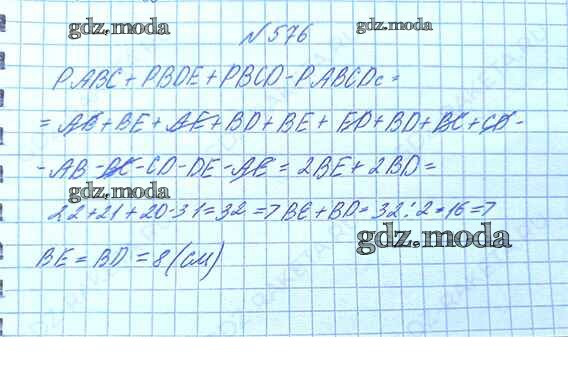 gdz.moda
gdz.moda
№576
PABC + PBDE + PBCD - PABCDc =
= AB + BE + AE + BD + BE + ED + BD + BC + CD -
- AB - BC - CD - DE - AE = 2BE + 2BD =
gdz.moda
22 + 21 + 20 - 31 = 32 => BE + BD = 32 : 2 = 16 =>
gdz.moda
BE = BD = 8 (см)